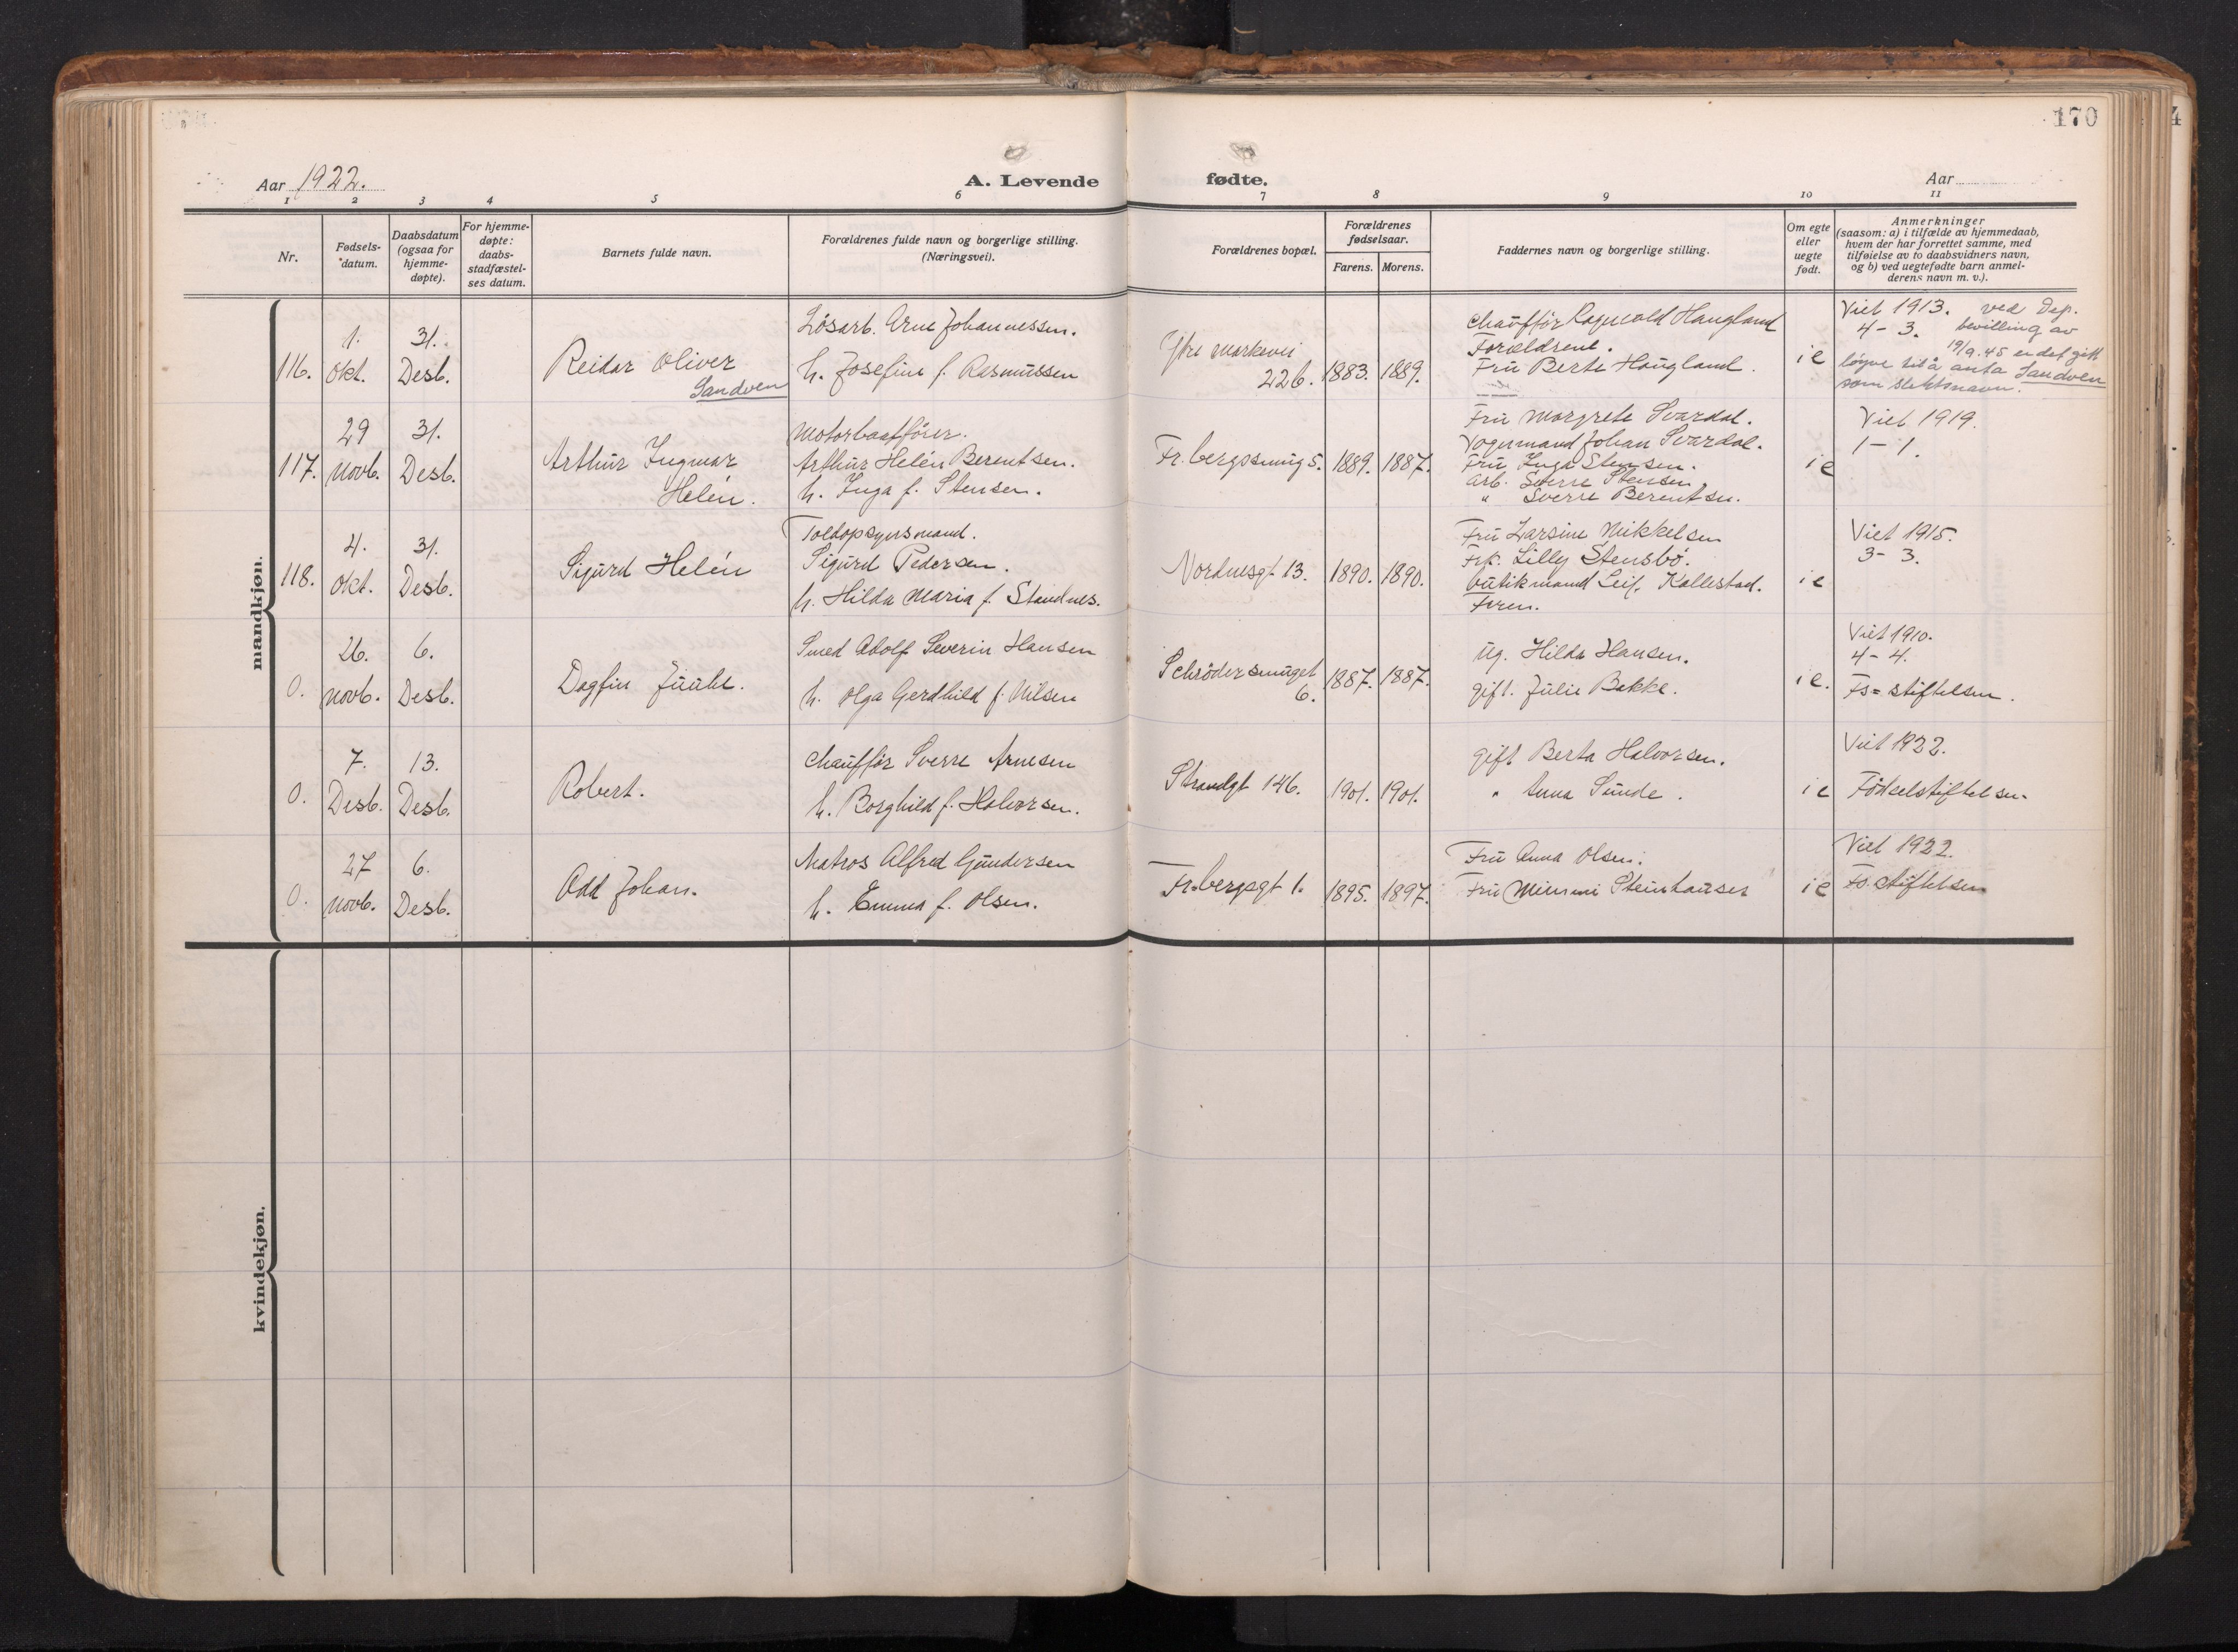 170
Aar 1922.
A. Levende fødte.
Aar
1 2 3 4 5 6 7 8 9 10 11
Nr.
Fødsels-
datum.
Daabsdatum
(ogsaa for
hjemme-
døpte).
For hjemme-
døpte:
daabs-
stadfæstel-
ses datum.
Barnets fulde navn.
Forældrenes fulde navn og borgerlige stilling.
(Næringsvei).
Forældrenes bopæl.
Forældrenes
fødselsaar.
Farens. Morens.
Faddernes navn og borgerlige stilling.
Om egte
eller
uegte
født.
Anmerkninger
(saasom: a) i tilfælde av hjemmedaab,
hvem der har forrettet samme, med
tilføielse av to daabsvidners navn,
og b) ved uegtefødte barn anmel-
derens navn m. v.).
mandkjøn.
116.
1.
Okt.
31.
Desb.
Reidar Oliver
Sandven
Løsarb. Arne Johannessen.
h. Josefine f. Rasmussen
Ytre Markevei
22b.
1883. 1889.
Chauffør Ragnvald Haugland
Forældrene.
Fru Berte Haugland.
ie
Viet 1913.
4-3.
ved Dep.
bevilling av
19/9.45 er det gitt
løyve til å anta Sandven
som slektsnavn.
117.
29
Novb.
31.
Desb.
Arthur Ingmar
Helén.
Motorbaatfører.
Arthur Helén Berentsen.
h. Inga f. Stensen.
Fr.bergssmug 5.
1889. 1887.
Fru Margrete Svardal.
Vognmand Johan Svardal.
Fru Inga Stensen.
Arb. Sverre Stensen
" Sverre Berentsen.
ie
Viet 1919.
1-1.
118.
4.
Okt.
31.
Desb.
Sigurd Helén
Toldopsynsmand.
Sigurd Pedersen.
h. Hilda Maria f. Standnes.
Nordnesgt 13.
1890. 1890.
Fru Larsine Mikkelsen
Frk. Lilly Stensbø.
Butikmand Leif Kallestad.
Faren.
ie
Viet 1915.
3-3.
0.
26.
Novb.
6.
Desb.
Dagfin Juuhl.
Smed Adolf Severin Hansen
h. Olga Gerdhild f. Nilsen
Schrødersmuget
6.
1887. 1887.
Ug. Hilda Hansen.
gift. Julie Bakke.
ie.
Viet 1910.
4-4.
Fs=stiftelsen.
0.
7.
Desb.
13.
Desb.
Robert.
Chauffør Sverre Arnesen
h. Borghild f. Halvorsen.
Strandgt 146.
1901. 1901.
gift Berta Halvorsen.
" Anna Sunde.
ie
Viet 1922.
Fødselstiftelsen.
0.
27
Novb.
6.
Desb.
Odd Johan.
Matros Alfred Gundersen
h. Emma f. Olsen.
Fr.bergsgt 1.
1895. 1897.
Fru Anna Olsen.
Fru Mimmi Steinhauser
ie
Viet 1922.
Fs. stiftelsen
kvindekjøn.